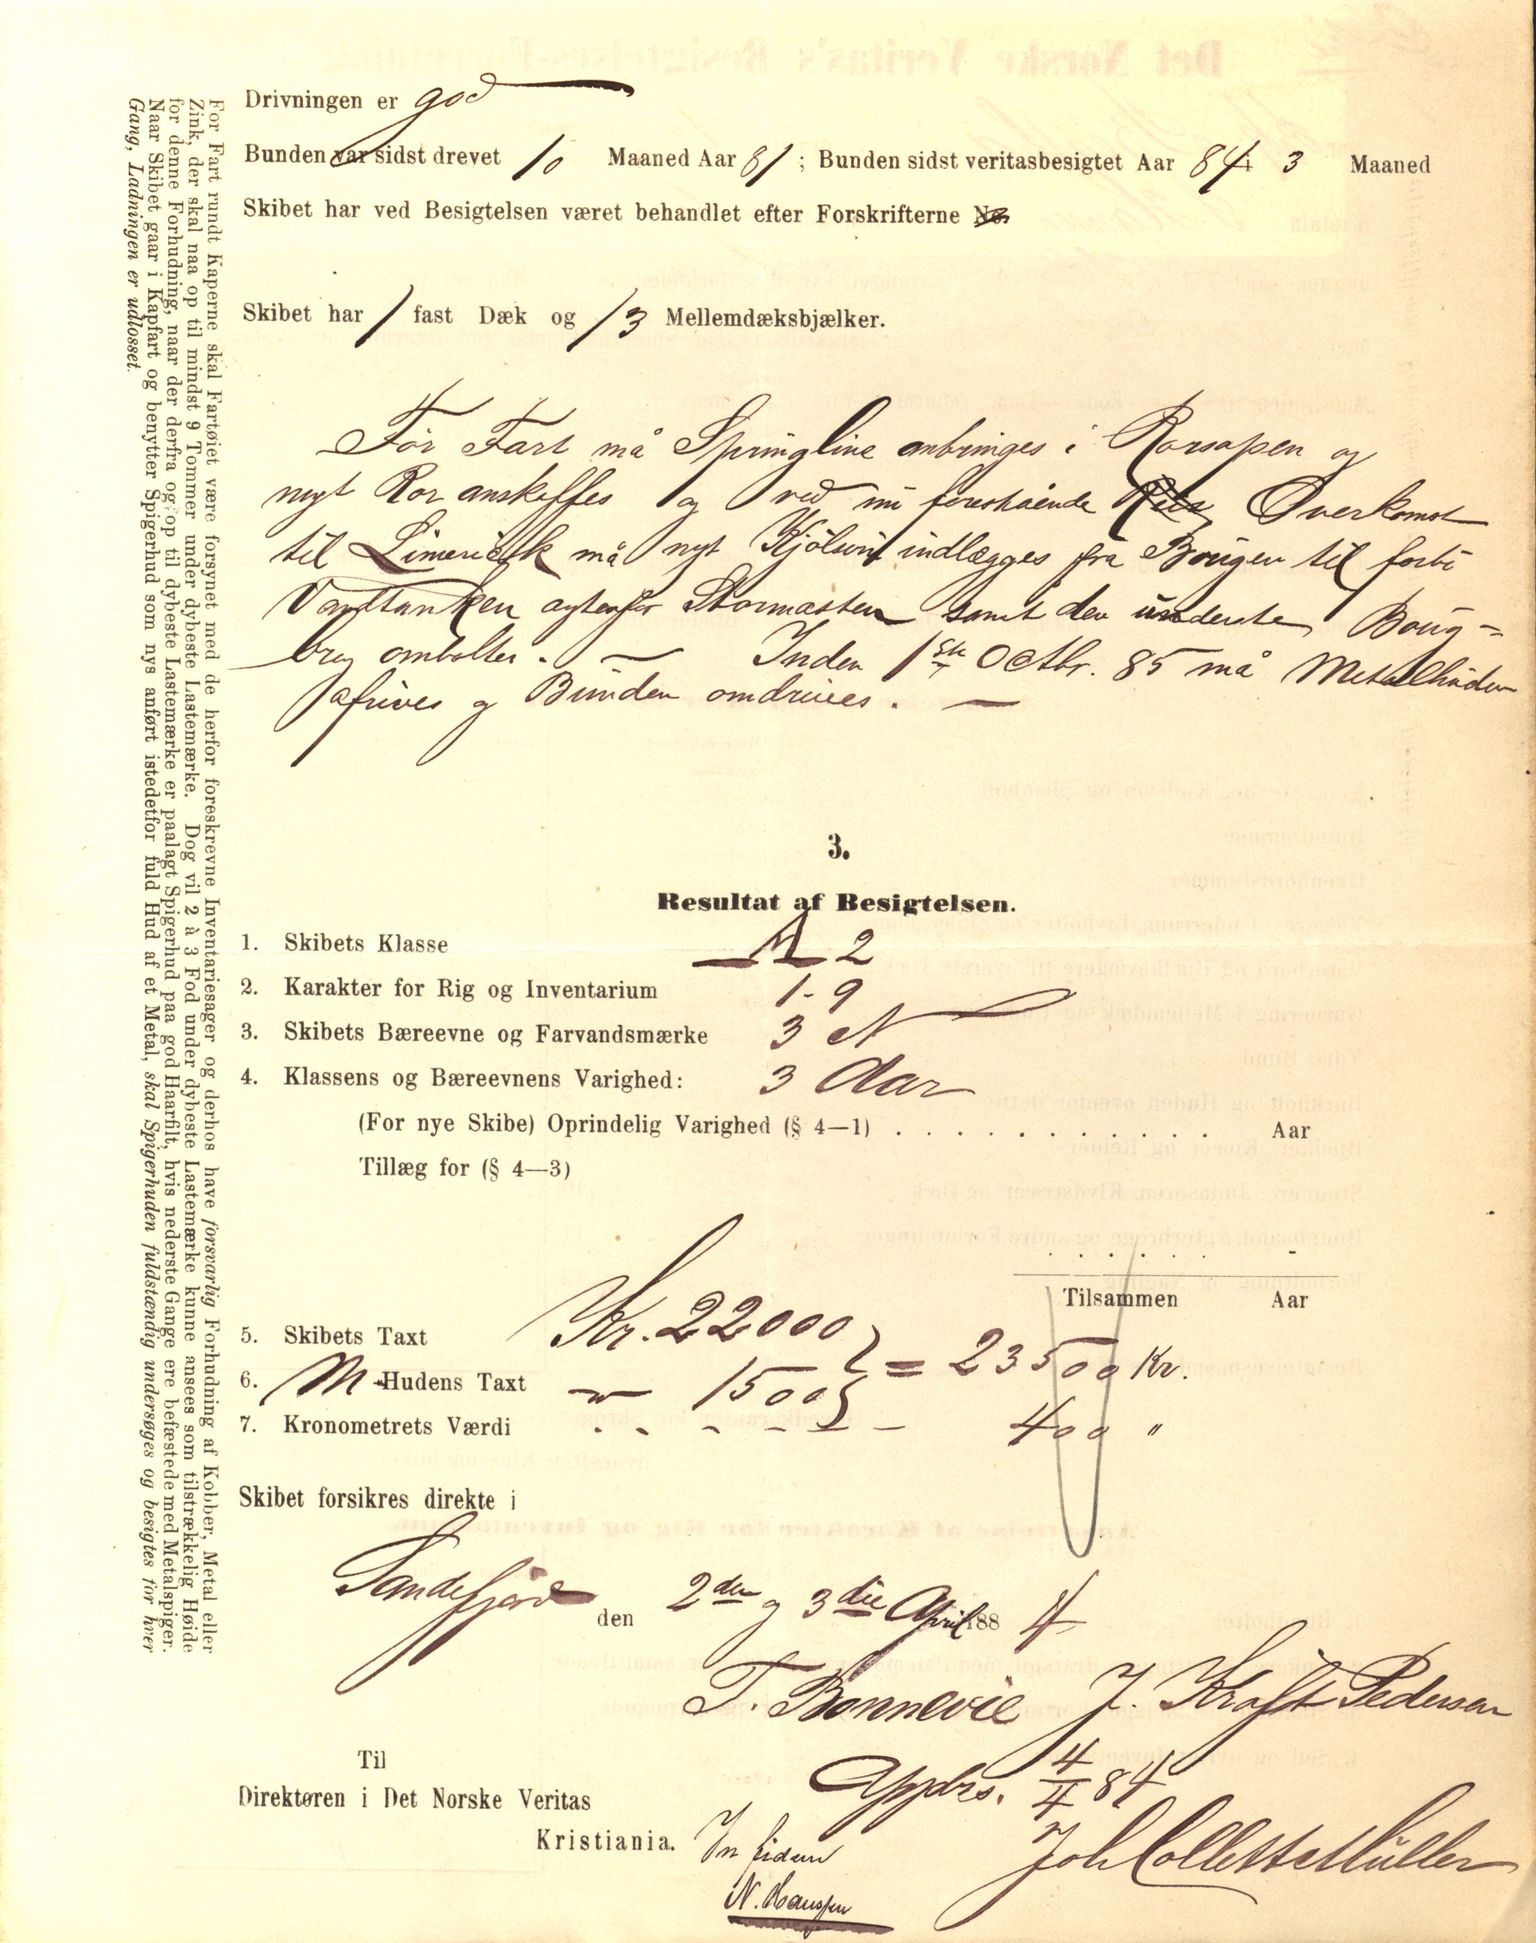 Drivningen er god
Bunden var sidst drevet 10 Maaned Aar 81; Bunden sidst veritasbesigtet Aar 84 3 Maaned
Skibet har ved Besigtelsen været behandlet efter Forskrifterne No
Skibet har 1 fast Dæk og 13 Mellemdæksbjælker.
Før Fart må Springline anbringes i Rorsapen og
nyt Ror anskaffes og ved nu forestående Reis Overkomst
til Limerick må nyt Kjølsvin indlægges fra Bougen til forbi
Vandtanken agtenfor Stormasten samt den underste Boug-
brog ombolter. — Inden 1ste Octbr. 85 må Metalhuden
afrives og Bunden omdrives. —
3.
Resultat af Besigtelsen.
1. Skibets Klasse A 2
2. Karakter for Rig og Inventarium 1-9
3. Skibets Bæreevne og Farvandsmærke 3 N
4. Klassens og Bæreevnens Varighed: 3 Aar
(For nye Skibe) Oprindelig Varighed (§ 4—1) . . . . . . . . . . . . Aar
Tillæg for (§ 4—3)
. . . . . -
Tilsammen Aar
5. Skibets Taxt Kr. 22000 } = 23500 Kr.
6. M-Hudens Taxt " 1500 }
7. Kronometrets Værdi . - - - - - 400 "
Skibet forsikres direkte i
Sandefjord den 2den og 3die April 1884
T. Bonnevie J. Kraft Pedersen
Til
Direktøren i Det Norske Veritas
Kristiania.
Appbrs. 4/4 84
Joh Collett Müller
In fidem
N. Hanssen
For Fart rundt Kaperne skal Fartøiet være forsynet med de herfor foreskrevne Inventariesager og derhos have forsvarlig Forhudning af Kobber, Metal eller
Zink, der skal naa op til mindst 9 Tommer under dybeste Lastemærke. Dog vil 2 à 3 Fod under dybeste Lastemærke kunne ansees som tilstrækkelig Høide
for denne Forhudning, naar der derfra og op til dybeste Lastemærke er paalagt Spigerhud paa god Haarfilt, hvis nederste Gange ere befæstede med Metalspiger.
Naar Skibet gaar i Kapfart og benytter Spigerhud som nys anført istedetfor fuld Hud af et Metal, skal Spigerhuden fuldstændig undersøges og besigtes for hver
Gang, Ladningen er udlosset.